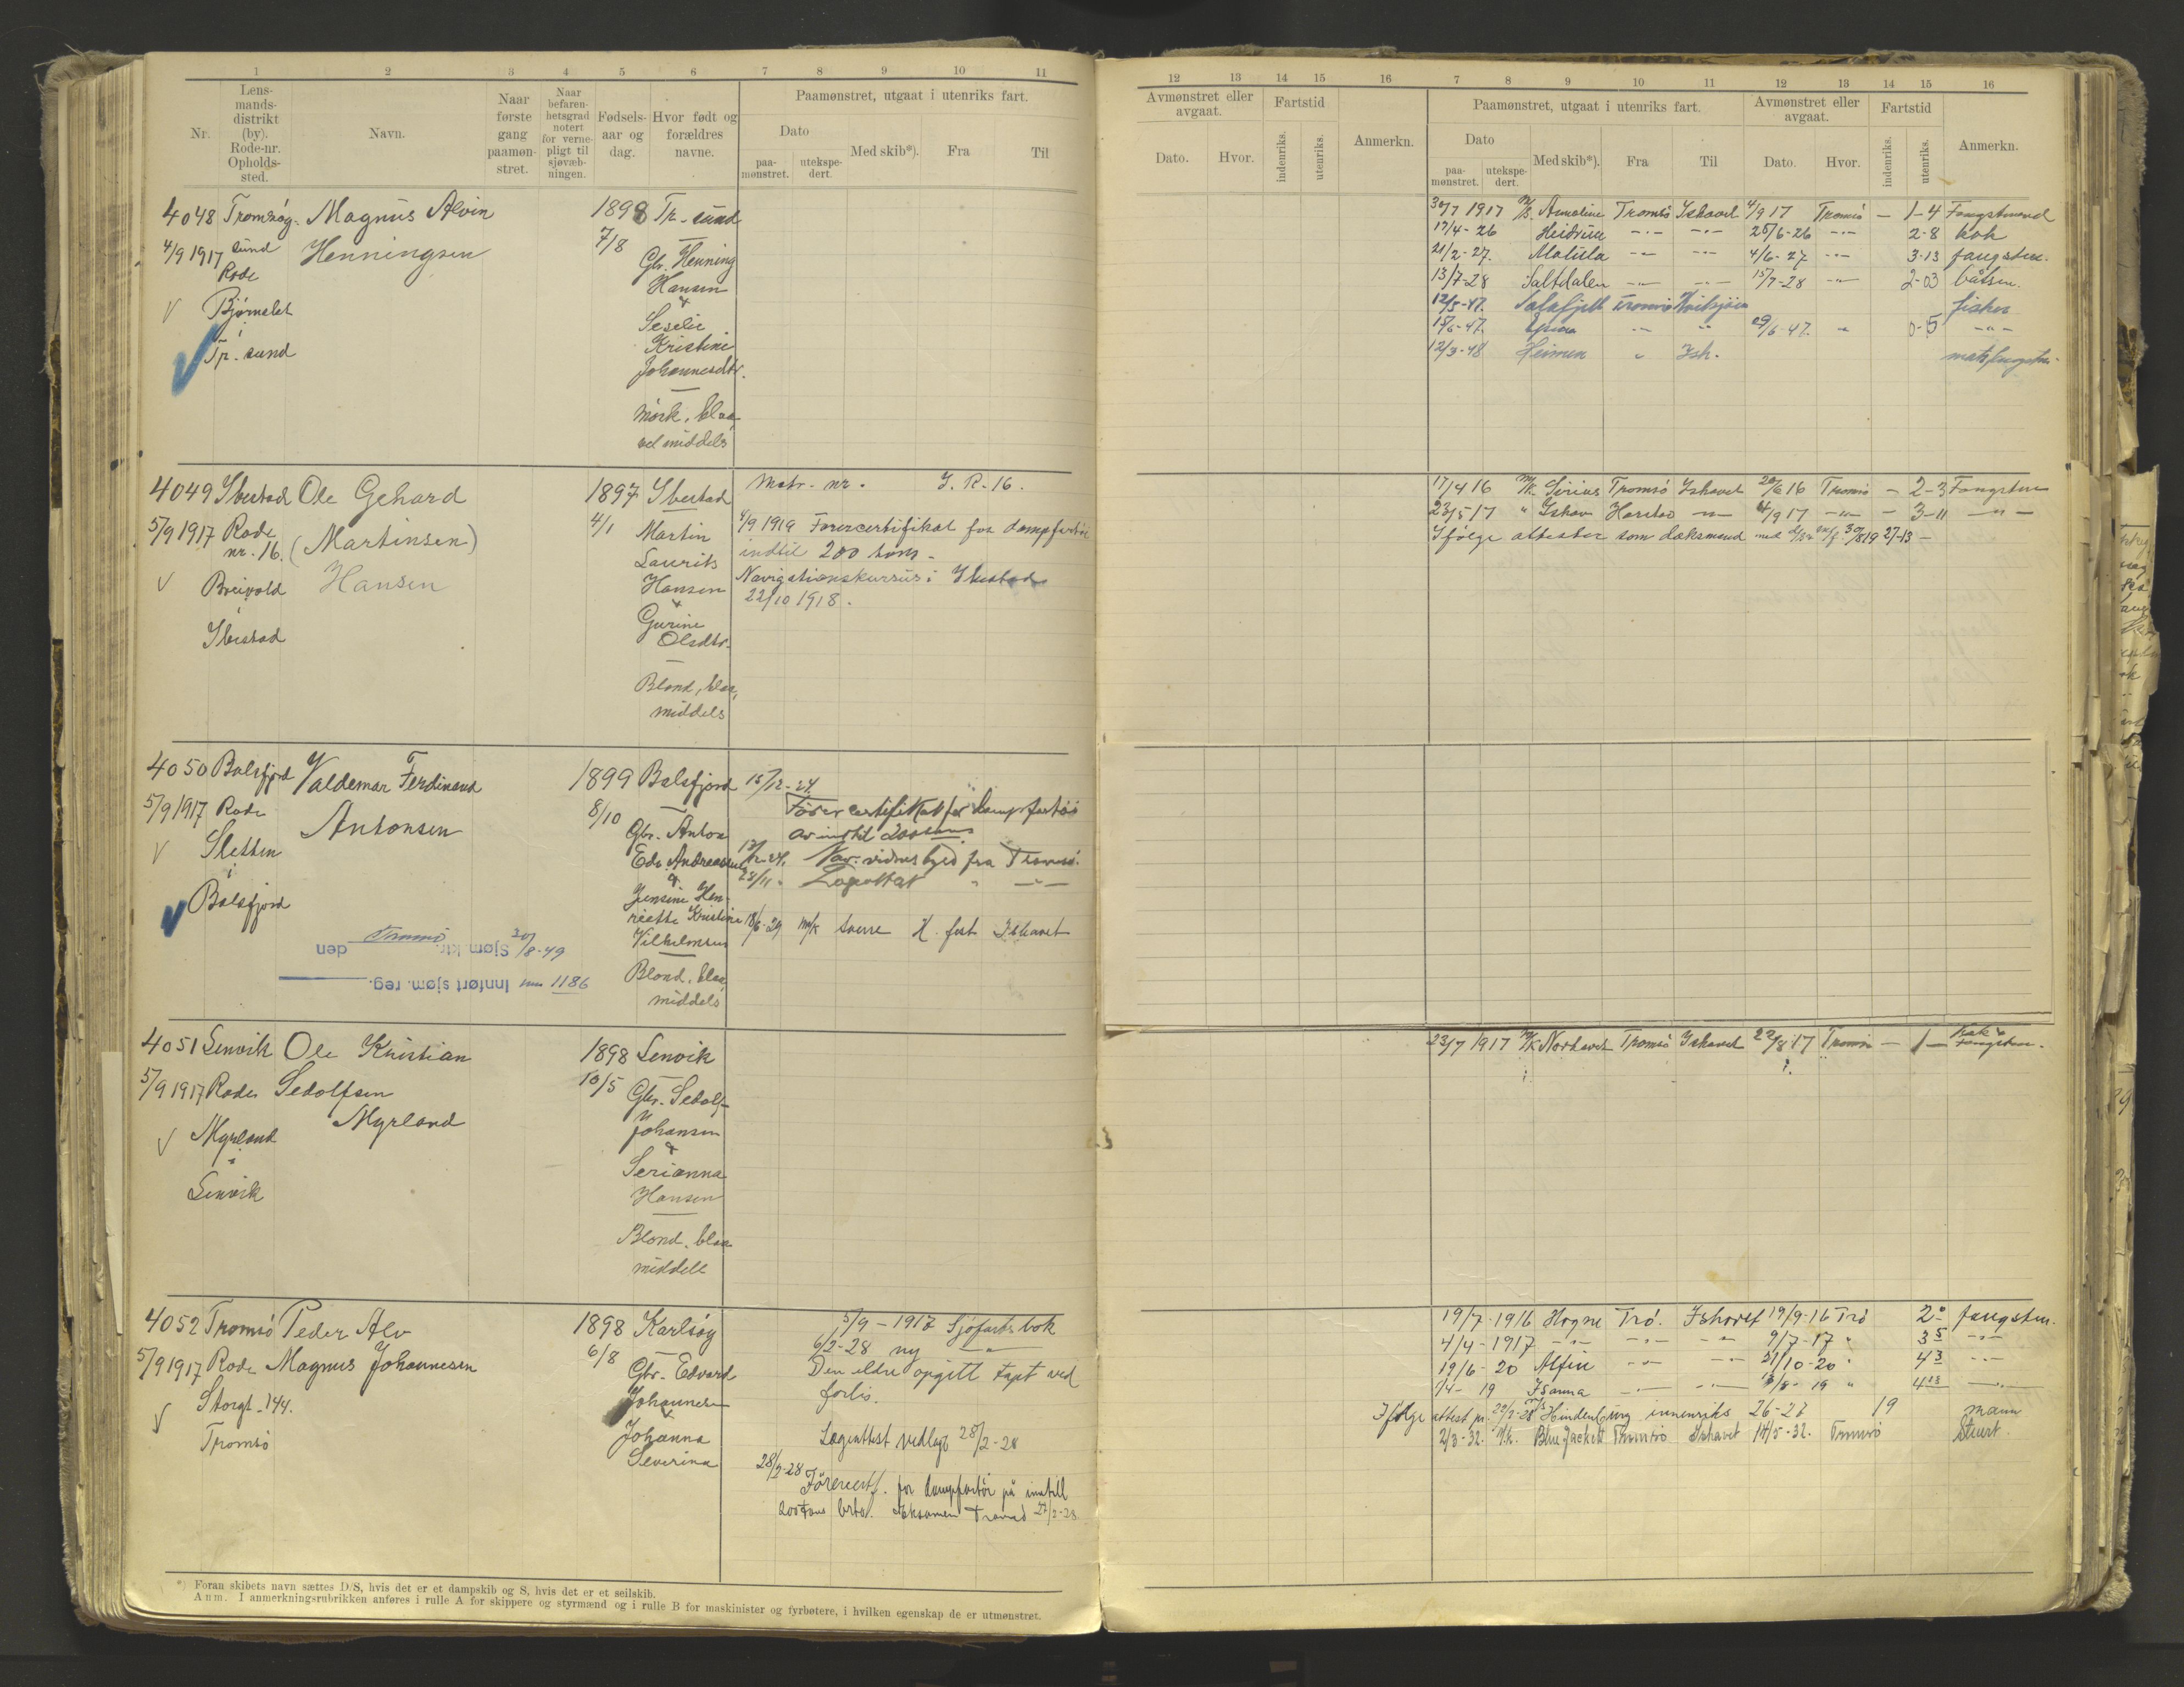 1 2 3 4 5 6 7 8 9 10 11
Nr. Lensmandsdistrikt (by). Rode-nr. Opholdssted. Navn. Naar første gang paamønstret. Naar befarenhetsgrad notert for vernepligt til sjøvæbningen. Fødselsaar og dag. Hvor født og forældres navne.
Paamønstret, utgaat i utenriks fart.
Dato Med skib*). Fra Til
paamønstret. utekspedert.
4048 Tromsøy- Magnus Alvin 1898 Tr-sund
4/9 1917 sund Henningsen 7/8 Gbr. Henning
Rode Hansen
Bjørnelet &
i Seselie
Tr. sund Kristine
Johannesdtr.
Mørk, blaa,
vel middels
4049 Ibestad Ole Gehard 1897 Ibestad Matr. nr. I. R. 16.
5/9 1917 Rode (Martinsen) 4/1 Martin 9/9 1919 Førercertifikat for dampfartøi
nr. 16. Hansen Laurits indtil 200 tons.
Breivold Hansen Navigationskursus i Ibestad
i & 22/10 1918.
Ibestad Gurine
Olsdtr.
Blond, blaa,
middels
4050 Balsfjord Valdemar Ferdinand 1899 Balsfjord 15/12-24
5/9 1917 Rode Antonsen 8/10 Gbr. Anton Førercertifikat for dampfartøi
Sletten Edv. Andreassen av indtil 200 tons
i & Nav. vidnesbyrd fra Tromsø.
Balsfjord Jensine Hen- 28/11 " Lægeattest " -"-
riette Kristine 18/6-29 m/k Sverre H. fest Ishavet
Vilhelmsen
Blond, blaa,
middels
Innført sjøm. reg. 1186
Sjøm.ktr. Tromsø den 30/8-49
4051 Lenvik Ole Kristian 1898 Lenvik
5/9 1917 Rode Sedolfsen 10/5 Gbr. Sedolf
Myrland Myrland Johansen
i &
Lenvik Serianna
Hansen
Blond, blaa
middels
4052 Tromsø Peder Alv 1898 Karlsøy 5/9 - 1917 Sjøfartsbok
5/9 1917 Rode Magnus Johannesen 6/8 Gbr. Edvard 6/2-28 ny -"-
Storgt. 144. Johannesen Den eldre opgitt tapt ved
Tromsø & forlis.
Johanna Lægeattest vedlagt 28/2-28
Severina 28/2-28 Førercertf. for dampfartøi på inntill
200 tons brto. Eksamen Tromsø 27/2-28
*) Foran skibets navn sættes D/S, hvis det er et dampskib og S, hvis det er et seilskib.
Anm. I anmerkningsrubrikken anføres i rulle A for skippere og styrmænd og i rulle B for maskinister og fyrbøtere, i hvilken egenskap de er utmønstret.
12 13 14 15 16 7 8 9 10 11 12 13 14 15 16
Avmønstret eller avgaat. Fartstid Anmerkn. Paamønstret, utgaat i utenriks fart. Avmønstret eller avgaat. Fartstid Anmerkn.
Dato. Hvor. indenriks. utenriks. Dato paamønstret. utekspedert. Med skib*). Fra Til Dato. Hvor. indenriks. utenriks.
30/7 1917 M/S. Tromsø Ishavet 4/9 17 Tromsø - 1-4 Fangstmand
17/4-26 Heidrun -"- -"- 25/6-26 -"- 2-8 kok
21/2-27. -"- -"- 4/6-27 -"- 3-13 fangstm.
13/7-28 Saltdalen -"- -"- 15/9-28 -"- 2-03 båtsm.
12/5-47. Tromsø fisker
15/6-47. -"- " 29/6-47. " 0-5 -"-
12/3-48 Heimen " Ish.
17/4 16 M/k. Sirius Tromsø Ishavet 20/6 16 Tromsø - 2-3 Fangstm
23/5 17 " Ishav Harstad -"- 4/9 17 -"- - 3-11 -"-
Ifølge attester som dæksmand 30/8 19 27-13 -
23/7 1917 M/K Norhavet Tromsø Ishavet 22/8 17 Tromsø - 1 - Kok & Fangstm.
19/7-1916 Hogne Trø. Ishavet 19/9-16 Trø 2- fangstm.
4/4-1917 -"- -"- -"- 9/7-17 " 3 5 -"-
19/6-20 Alfin -"- -"- 21/10-20 " 4 3 -"-
1/4- 19 -"- -"- 13/8-19 " -"-
Ifølge attest pr. Hindenburg innenriks 26-27 19 mann
2/3-32. M.k. Blue Jackett Tromsø Ishavet 14/5-32. Tromsø Stuert.